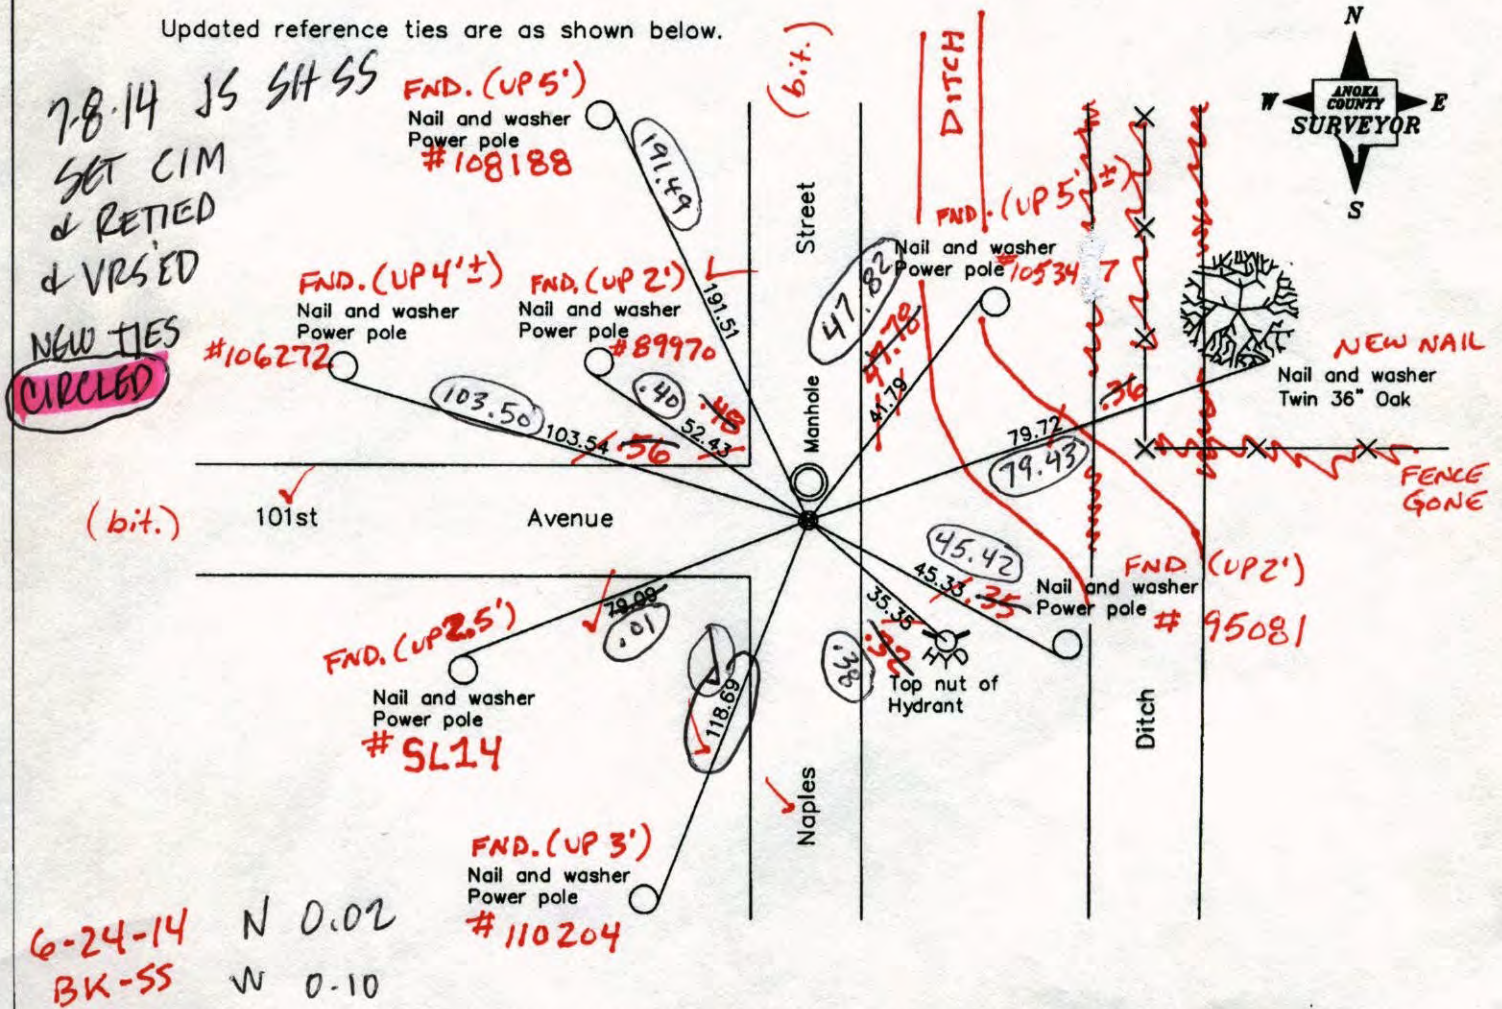 Updated reference ties are as shown below.
7-8-14 JS SH SS
SET CIM
& RETIED
& VRS'ED
NEW TIES
CIRCLED
FND. (UP 5')
Nail and washer
Power pole
#108188
191.49
191.51
(bit.)
DITCH
N
W
ANOKA
COUNTY
SURVEYOR
E
S
Street
FND. (UP 5'±)
Nail and washer
Power pole #105347
47.82
47.78
41.79
FND. (UP 4'±)
Nail and washer
Power pole
#106272
103.50
103.54
.56
FND. (UP 2')
Nail and washer
Power pole
#89970
.40
.48
52.43
Manhole
NEW NAIL
Nail and washer
Twin 36" Oak
.36
79.72
79.43
FENCE
GONE
(bit.)
101st Avenue
45.42
45.33
.35
FND. (UP 2')
Nail and washer
Power pole
# 95081
35.36
.32
.38
HYD
Top nut of
Hydrant
Ditch
79.09
.01
FND. (UP 2.5')
Nail and washer
Power pole
# SL14
118.69
Naples
FND. (UP 3')
Nail and washer
Power pole
# 110204
6-24-14
BK-SS
N 0.02
W 0.10